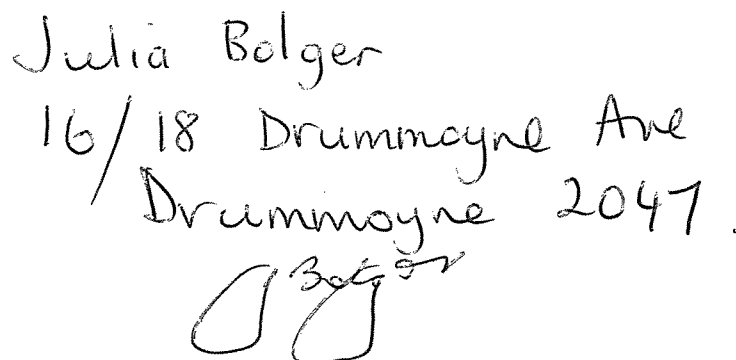 Julia Bolger
16/18 Drummoyne Ave
Drummoyne 2047.
J Bolger